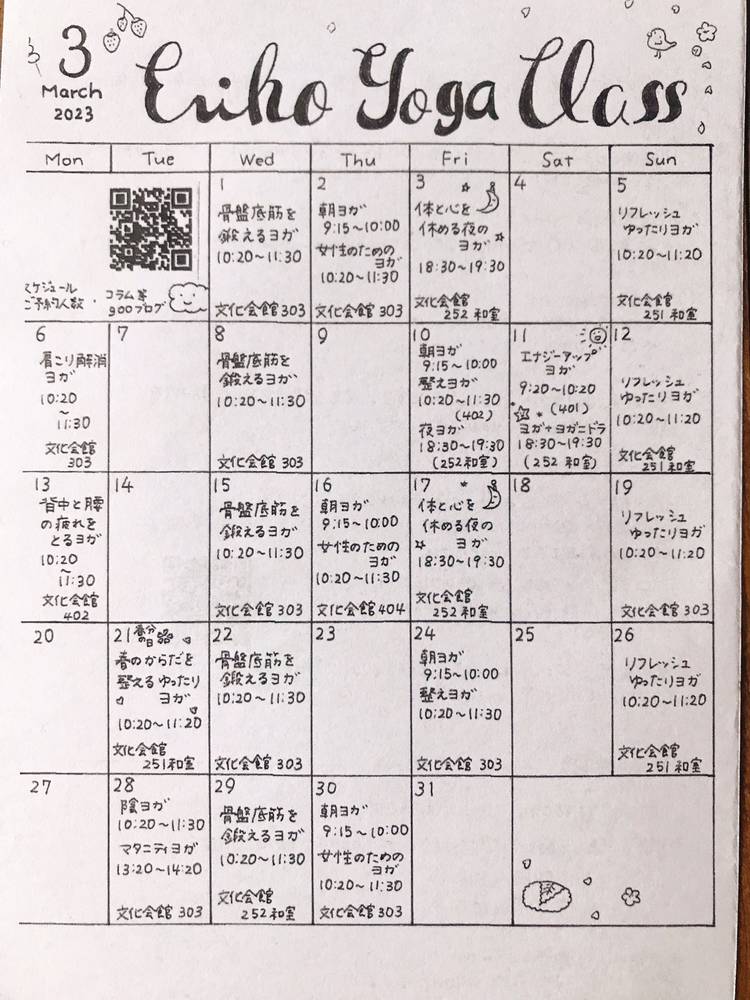 3
March
2023
Eriko Yoga Class
Mon Tue Wed Thu Fri Sat Sun
スケジュール
ご予約人数・
コラム等
gooブログ
1
骨盤底筋を
鍛えるヨガ
10:20〜11:30
文化会館303
2
朝ヨガ
9:15〜10:00
女性のための
ヨガ
10:20〜11:30
文化会館303
3
体と心を
休める夜の
ヨガ
18:30〜19:30
文化会館
252和室
4
5
リフレッシュ
ゆったりヨガ
10:20〜11:20
文化会館
251和室
6
肩こり解消
ヨガ
10:20
〜
11:30
文化会館
303
7
8
骨盤底筋を
鍛えるヨガ
10:20〜11:30
文化会館303
9
10
朝ヨガ
9:15〜10:00
整えヨガ
10:20〜11:30
(402)
夜ヨガ
18:30〜19:30
(252和室)
11
エナジーアップ
ヨガ
9:20〜10:20
(401)
ヨガ+ヨガニドラ
18:30〜19:30
(252和室)
12
リフレッシュ
ゆったりヨガ
10:20〜11:20
文化会館
251和室
13
背中と腰
の疲れを
とるヨガ
10:20
〜
11:30
文化会館
402
14
15
骨盤底筋を
鍛えるヨガ
10:20〜11:30
文化会館303
16
朝ヨガ
9:15〜10:00
女性のための
ヨガ
10:20〜11:30
文化会館404
17
体と心を
休める夜の
ヨガ
18:30〜19:30
文化会館
252和室
18
19
リフレッシュ
ゆったりヨガ
10:20〜11:20
文化会館303
20
21 春分の日
春のからだを
整えるゆったり
ヨガ
10:20〜11:20
文化会館
251和室
22
骨盤底筋を
鍛えるヨガ
10:20〜11:30
文化会館303
23
24
朝ヨガ
9:15〜10:00
整えヨガ
10:20〜11:30
文化会館303
25
26
リフレッシュ
ゆったりヨガ
10:20〜11:20
文化会館
251和室
27
28
陰ヨガ
10:20〜11:30
マタニティヨガ
13:20〜14:20
文化会館303
29
骨盤底筋を
鍛えるヨガ
10:20〜11:30
文化会館
252和室
30
朝ヨガ
9:15〜10:00
女性のための
ヨガ
10:20〜11:30
文化会館303
31